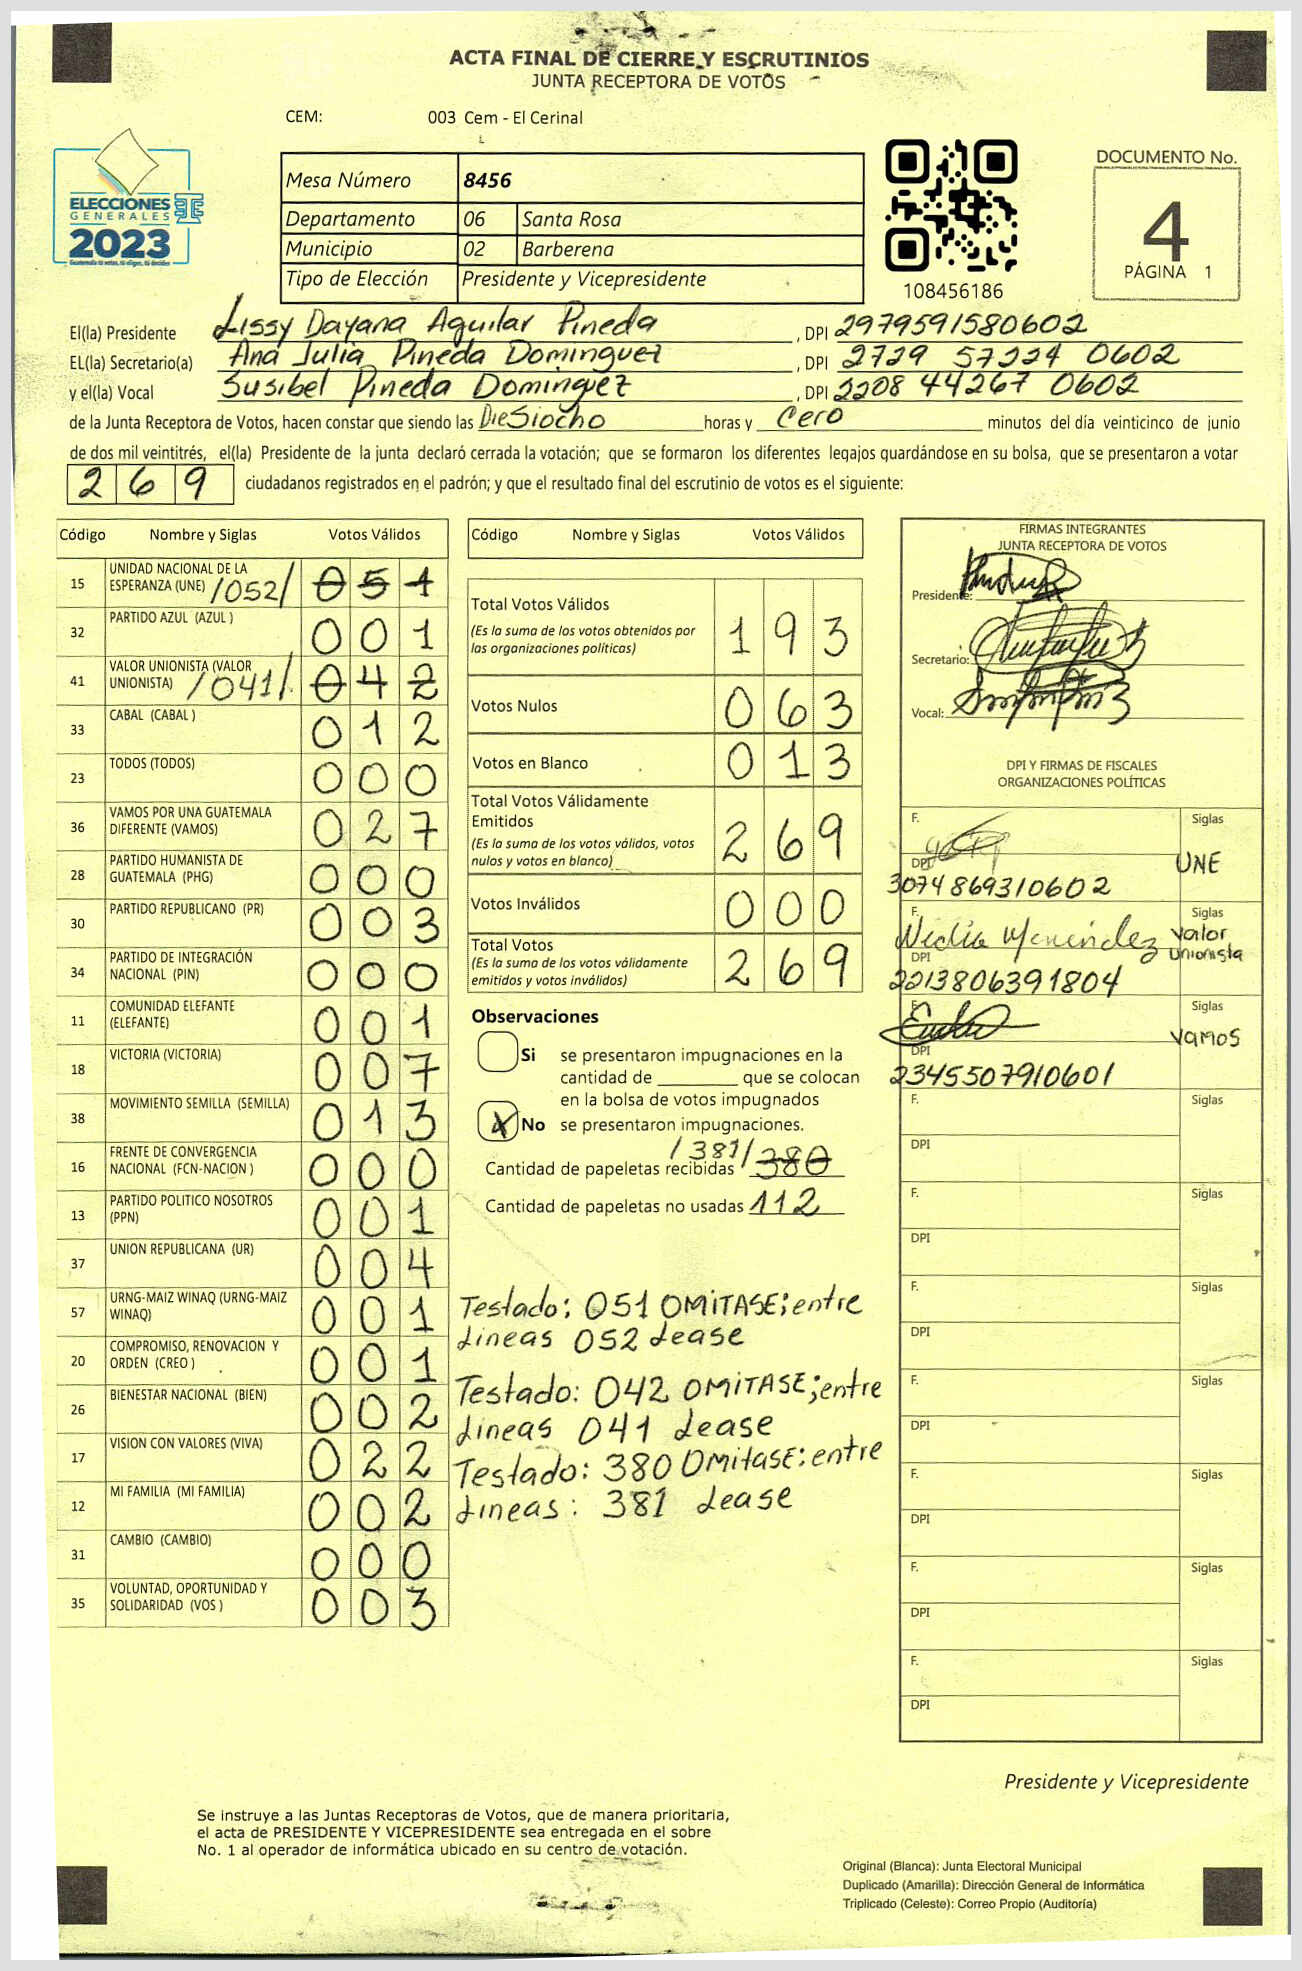 ACTA FINAL DE CIERRE Y ESCRUTINIOS
JUNTA RECEPTORA DE VOTOS
CEM: 003 Cem - El Cerinal
ELECCIONES
GENERALES
2023
Guatemala tú votas, tú eliges, tú decides
Mesa Número 8456
Departamento 06 Santa Rosa
Municipio 02 Barberena
Tipo de Elección Presidente y Vicepresidente
108456186
DOCUMENTO No.
4
PÁGINA 1
El(la) Presidente Lissy Dayana Aguilar Pineda , DPI 2979591580602
EL(la) Secretario(a) Ana Julia Pineda Dominguez , DPI 2729 57224 0602
y el(la) Vocal Susibel Pineda Dominguez , DPI 2208 44267 0602
de la Junta Receptora de Votos, hacen constar que siendo las DieSiocho horas y Cero minutos del día veinticinco de junio
de dos mil veintitrés, el(la) Presidente de la junta declaró cerrada la votación; que se formaron los diferentes legajos guardándose en su bolsa, que se presentaron a votar
269 ciudadanos registrados en el padrón; y que el resultado final del escrutinio de votos es el siguiente:
Código Nombre y Siglas Votos Válidos
15 UNIDAD NACIONAL DE LA
ESPERANZA (UNE) /052/ 051
32 PARTIDO AZUL (AZUL ) 001
41 VALOR UNIONISTA (VALOR
UNIONISTA) /041/. 042
33 CABAL (CABAL ) 012
23 TODOS (TODOS) 000
36 VAMOS POR UNA GUATEMALA
DIFERENTE (VAMOS) 027
28 PARTIDO HUMANISTA DE
GUATEMALA (PHG) 000
30 PARTIDO REPUBLICANO (PR) 003
34 PARTIDO DE INTEGRACIÓN
NACIONAL (PIN) 000
11 COMUNIDAD ELEFANTE
(ELEFANTE) 001
18 VICTORIA (VICTORIA) 007
38 MOVIMIENTO SEMILLA (SEMILLA) 013
16 FRENTE DE CONVERGENCIA
NACIONAL (FCN-NACION ) 000
13 PARTIDO POLITICO NOSOTROS
(PPN) 001
37 UNION REPUBLICANA (UR) 004
57 URNG-MAIZ WINAQ (URNG-MAIZ
WINAQ) 001
20 COMPROMISO, RENOVACION Y
ORDEN (CREO ) 001
26 BIENESTAR NACIONAL (BIEN) 002
17 VISION CON VALORES (VIVA) 022
12 MI FAMILIA (MI FAMILIA) 002
31 CAMBIO (CAMBIO) 000
35 VOLUNTAD, OPORTUNIDAD Y
SOLIDARIDAD (VOS ) 003
Código Nombre y Siglas Votos Válidos
Total Votos Válidos 193
(Es la suma de los votos obtenidos por
las organizaciones políticas)
Votos Nulos 063
Votos en Blanco 013
Total Votos Válidamente
Emitidos 269
(Es la suma de los votos válidos, votos
nulos y votos en blanco)
Votos Inválidos 000
Total Votos 269
(Es la suma de los votos válidamente
emitidos y votos inválidos)
Observaciones
Si se presentaron impugnaciones en la
cantidad de ________ que se colocan
en la bolsa de votos impugnados
X No se presentaron impugnaciones.
Cantidad de papeletas recibidas /381/ 380
Cantidad de papeletas no usadas 112
Testado: 051 OMiTASE; entre
Lineas 052 Lease
Testado: 042 OMiTASE; entre
Lineas 041 Lease
Testado: 380 OmitasE: entre
Lineas: 381 Lease
FIRMAS INTEGRANTES
JUNTA RECEPTORA DE VOTOS
Presidente:
Secretario:
Vocal:
DPI Y FIRMAS DE FISCALES
ORGANIZACIONES POLÍTICAS
F. Siglas
UNE
DPI
3074869310602
F. Siglas
Nidia Menéndez Valor
Unionista
DPI
2213806391804
F. Siglas
VAMOS
DPI
2345507910601
F. Siglas
DPI
F. Siglas
DPI
F. Siglas
DPI
F. Siglas
DPI
F. Siglas
DPI
F. Siglas
DPI
F. Siglas
DPI
Presidente y Vicepresidente
Se instruye a las Juntas Receptoras de Votos, que de manera prioritaria,
el acta de PRESIDENTE Y VICEPRESIDENTE sea entregada en el sobre
No. 1 al operador de informática ubicado en su centro de votación.
Original (Blanca): Junta Electoral Municipal
Duplicado (Amarilla): Dirección General de Informática
Triplicado (Celeste): Correo Propio (Auditoría)